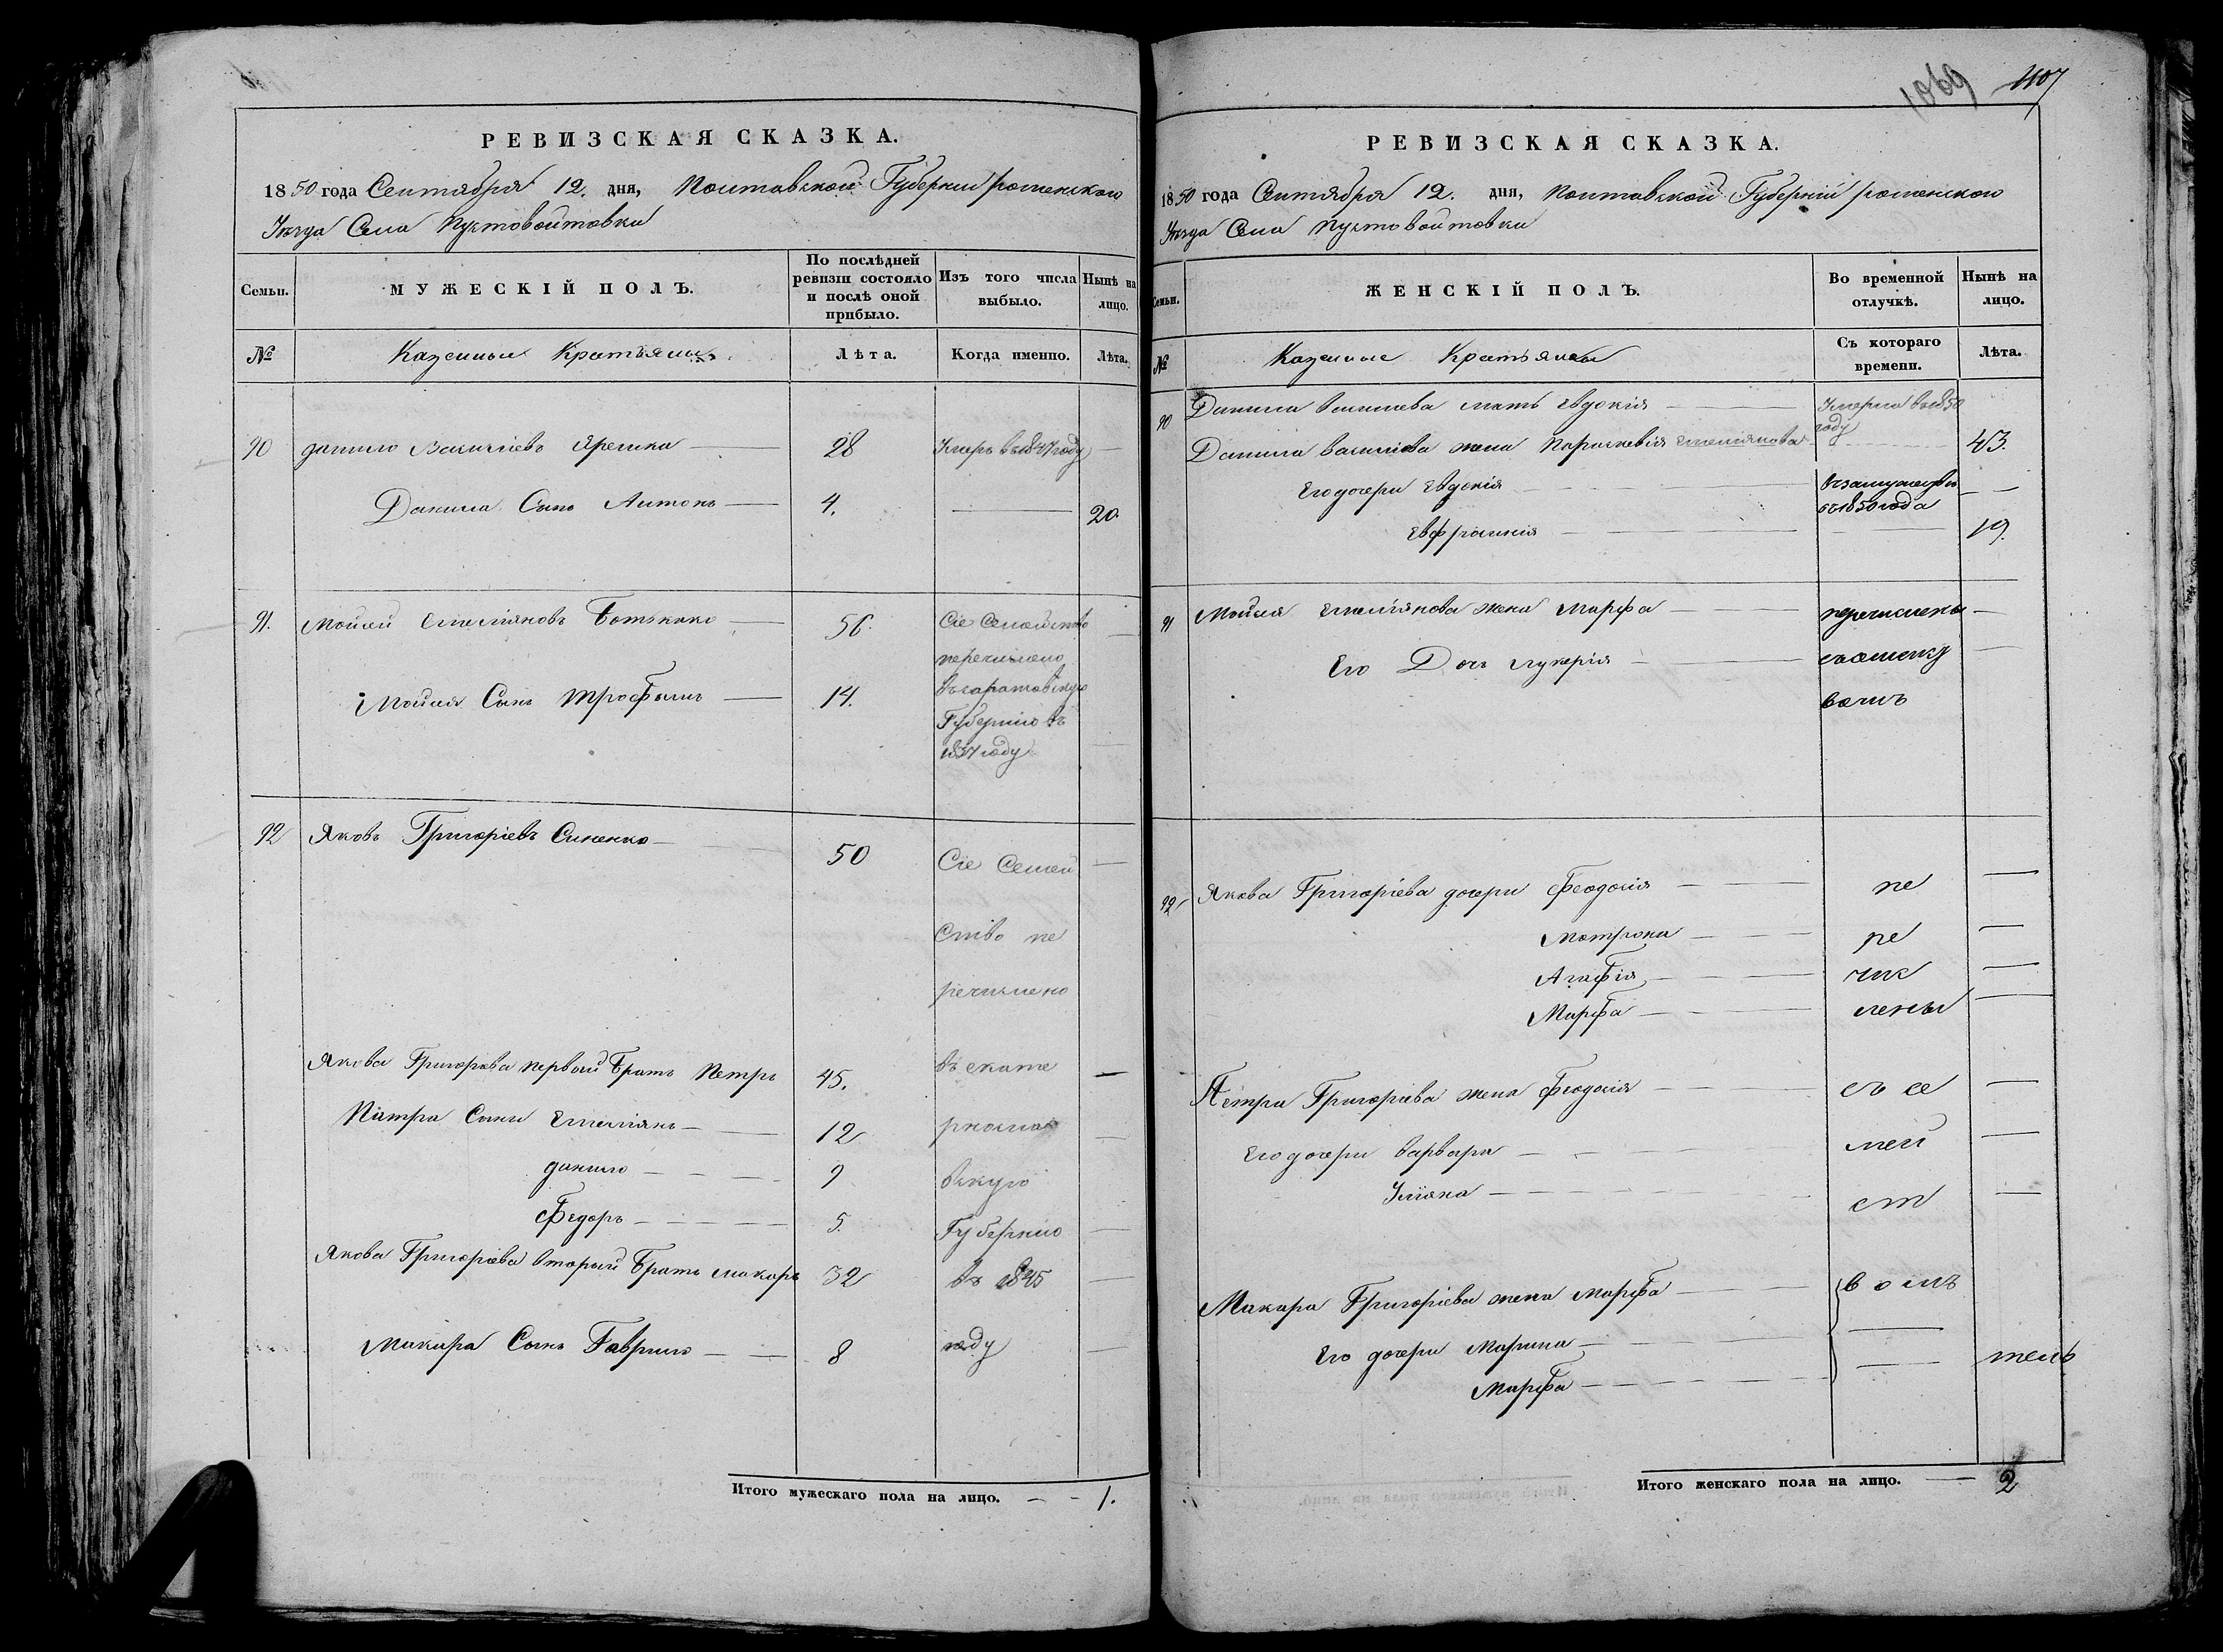 РЕВИЗСКАЯ СКАЗКА.
1850 года Сентября 12. дня, Полтавской Губернии роменского
Уезда Села Пустовойтовки
Семьи.
МУЖЕСКІЙ ПОЛЪ.
По послѣдней ревизіи состояло и послѣ оной прибыло.
Изъ того числа выбыло.
Нынѣ на лицо.
№
Казенные Крестьяны
Лѣта.
Когда именно.
Лѣта.
90 данило Васильевъ Ярешко 28 Умеръ въ 1847 году
Данила Сынъ Антонъ 4. 20
91. Мойсей Емельяновъ Ботько 56. Сіе Семейство
перечислено
Мойсея Сынъ Трофымъ 14. въ саратовскую
Губернію въ
1837 году
92 Яковъ Григоріевъ Синенко 50 Сіе Семей
ство пе
речислено
Якова Григорьева первый Братъ Петръ 45. въ екате
Питра Сыны Емельянъ 12 ринослав
данило 9 вскую
Федоръ 5. Губернію
Якова Григоріева вторый Братъ макаръ 32 въ 1845
Макара Сынъ Гаврило 8 году
Итого мужескаго пола на лицо. 1.
1069 1107
РЕВИЗСКАЯ СКАЗКА.
1850 года Сентября 12. дня, Полтавской Губерніи роменского
Уезда Села Пустовойтовки
Семьи.
ЖЕНСКІЙ ПОЛЪ.
Во временной отлучкѣ.
Нынѣ на лицо.
№
Казенные Крестьяны
Съ котораго времени.
Лѣта.
90 Данила Васильева мать Евдокія Умерла въ 1850
году
Данила Васильева жена Парасковія Емельянова 43.
Его дочери Евдокія въ замужестве
съ 1850 года
Евфросинія 19.
91 Мойсея Емельянова жена Марфа перечислены
Его Дочь Лукерія
92 Якова Григоріева дочери Феодосія пе
Мотрона ре
Агафія чис
Марфа лены
Петра Григоріева жена Феодосія съ се
Его дочери варвара мей
Ульяна ст
Макара Григоріева жена Марфа вомъ
Его дочери Марина
Марфа
Итого женскаго пола на лицо. 2